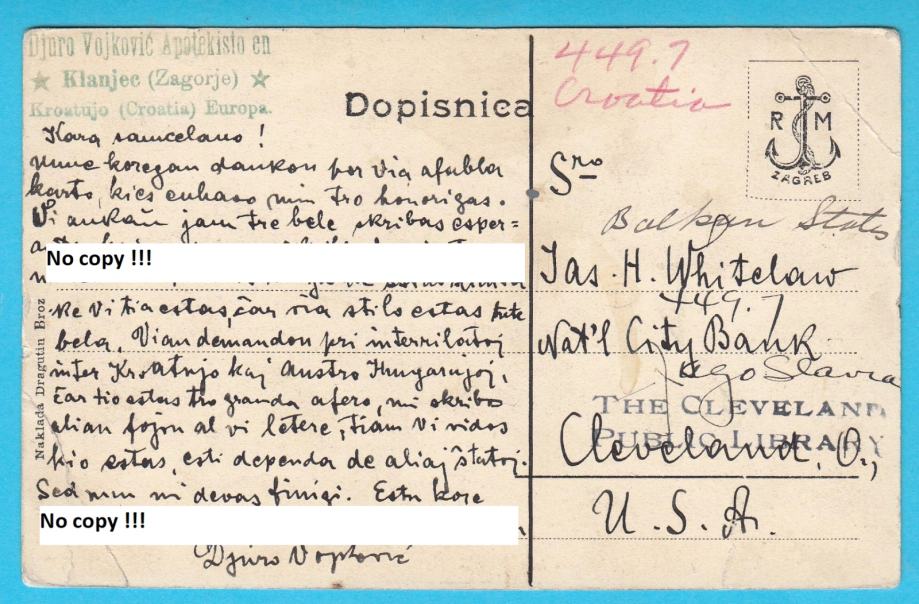 Djuro Vojković Apotekisto en
★ Klanjec (Zagorje) ★
Kroatujo (Croatia) Europa.
Dopisnica
449.7
Croatia
R M
ZAGREB
Kara samcelano!
Nune koregan dankon por Via afabla
karto, kies enhavo min tro honorigas.
Vi ankaŭ jam tre bele skribas esper=
No copy !!!
ke Vi tia estas, ĉar Via stilo estas tute
bela. Vi andemandon pri interrilatoj
inter Kroatujo kaj Austro Hungarujoj,
ĉar tio estas tro granda afero, mi skribos
alian fojon al vi letere, tiam Vi vidos
kio estas, esti dependa de aliaj ŝtatoj.
Sed nun mi devas finigi. Estu kore
No copy !!!
Djuro
Naklada Dragutin Broz
Sro
Balkan States
Jas. H. Whitelaw
449.7
Nat'l City Bank
Jugo Slavia
THE CLEVELAND
PUBLIC LIBRARY
Cleveland, O.,
U. S. A.